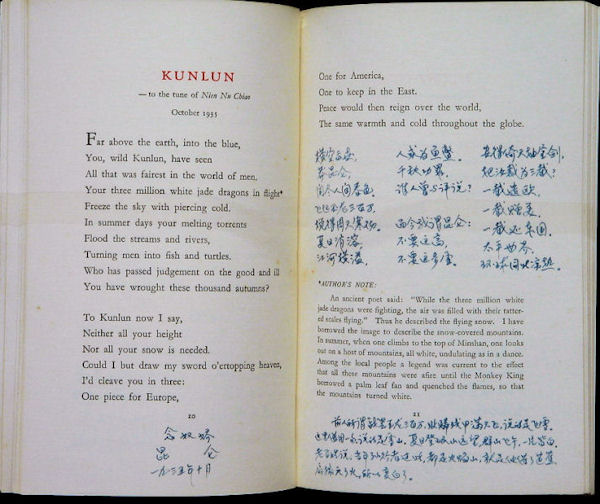 KUNLUN
— to the tune of Nien Nu Chiao
October 1935
Far above the earth, into the blue,
You, wild Kunlun, have seen
All that was fairest in the world of men.
Your three million white jade dragons in flight*
Freeze the sky with piercing cold.
In summer days your melting torrents
Flood the streams and rivers,
Turning men into fish and turtles.
Who has passed judgement on the good and ill
You have wrought these thousand autumns?
To Kunlun now I say,
Neither all your height
Nor all your snow is needed.
Could I but draw my sword o'ertopping heaven,
I'd cleave you in three:
One piece for Europe,
20
念奴娇
昆仑
一九三五年十月
One for America,
One to keep in the East.
Peace would then reign over the world,
The same warmth and cold throughout the globe.
横空出世,
莽昆仑,
阅尽人间春色.
飞起玉龙三百万,
搅得周天寒彻.
夏日消溶,
江河横溢,
人或为鱼鳖.
千秋功罪,
谁人曾与评说?
而今我谓昆仑:
不要这高,
不要这多雪.
安得倚天抽宝剑,
把汝裁为三截?
一截遗欧,
一截赠美,
一截还东国.
太平世界,
环球同此凉热.
*AUTHOR'S NOTE:
An ancient poet said: "While the three million white
jade dragons were fighting, the air was filled with their tatter-
ed scales flying." Thus he described the flying snow. I have
borrowed the image to describe the snow-covered mountains.
In summer, when one climbs to the top of Minshan, one looks
out on a host of mountains, all white, undulating as in a dance.
Among the local people a legend was current to the effect
that all these mountains were afire until the Monkey King
borrowed a palm leaf fan and quenched the flames, so that
the mountains turned white.
21
前人所谓战罢玉龙三百万, 败鳞残甲满天飞, 说的是飞雪.
这里借用一句说的是雪山. 夏日登岷山远望, 群山飞舞, 一片皆白.
老百姓说, 当年孙行者过此, 都是火焰山, 就是他借了芭蕉
扇搧灭了火, 所以变白了.